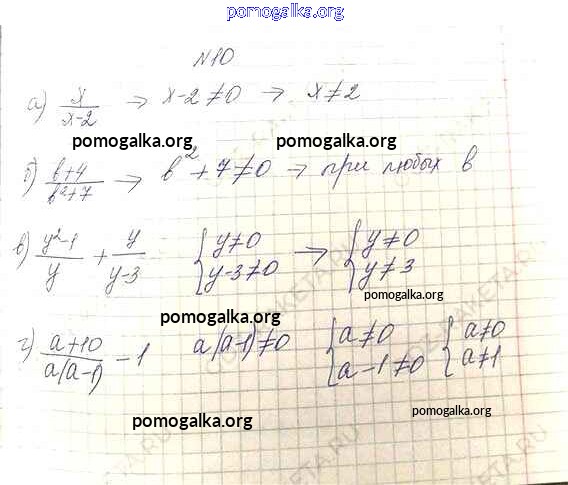 pomogalka.org
N10
а) x/(x-2) → x-2≠0 → x≠2
pomogalka.org pomogalka.org
б) (b+4)/(b²+7) → b²+7≠0 → при любых b
в) (y²-1)/y + y/(y-3) {y≠0 y-3≠0 → {y≠0 y≠3
pomogalka.org
pomogalka.org
г) (a+10)/(a(a-1)) - 1 a(a-1)≠0 {a≠0 a-1≠0 {a≠0 a≠1
pomogalka.org
pomogalka.org